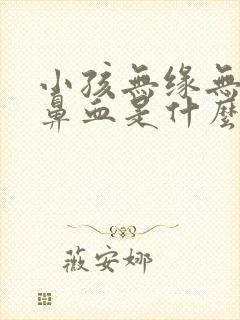 小孩無緣無
鼻血是什麼
薇安娜